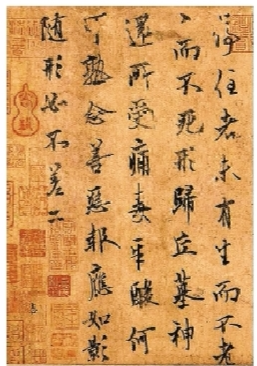 得住者未有生而不老
而不死形歸丘墓神
還所受痛毒辛酸何
可熟念善惡報應如影
隨形必不差二